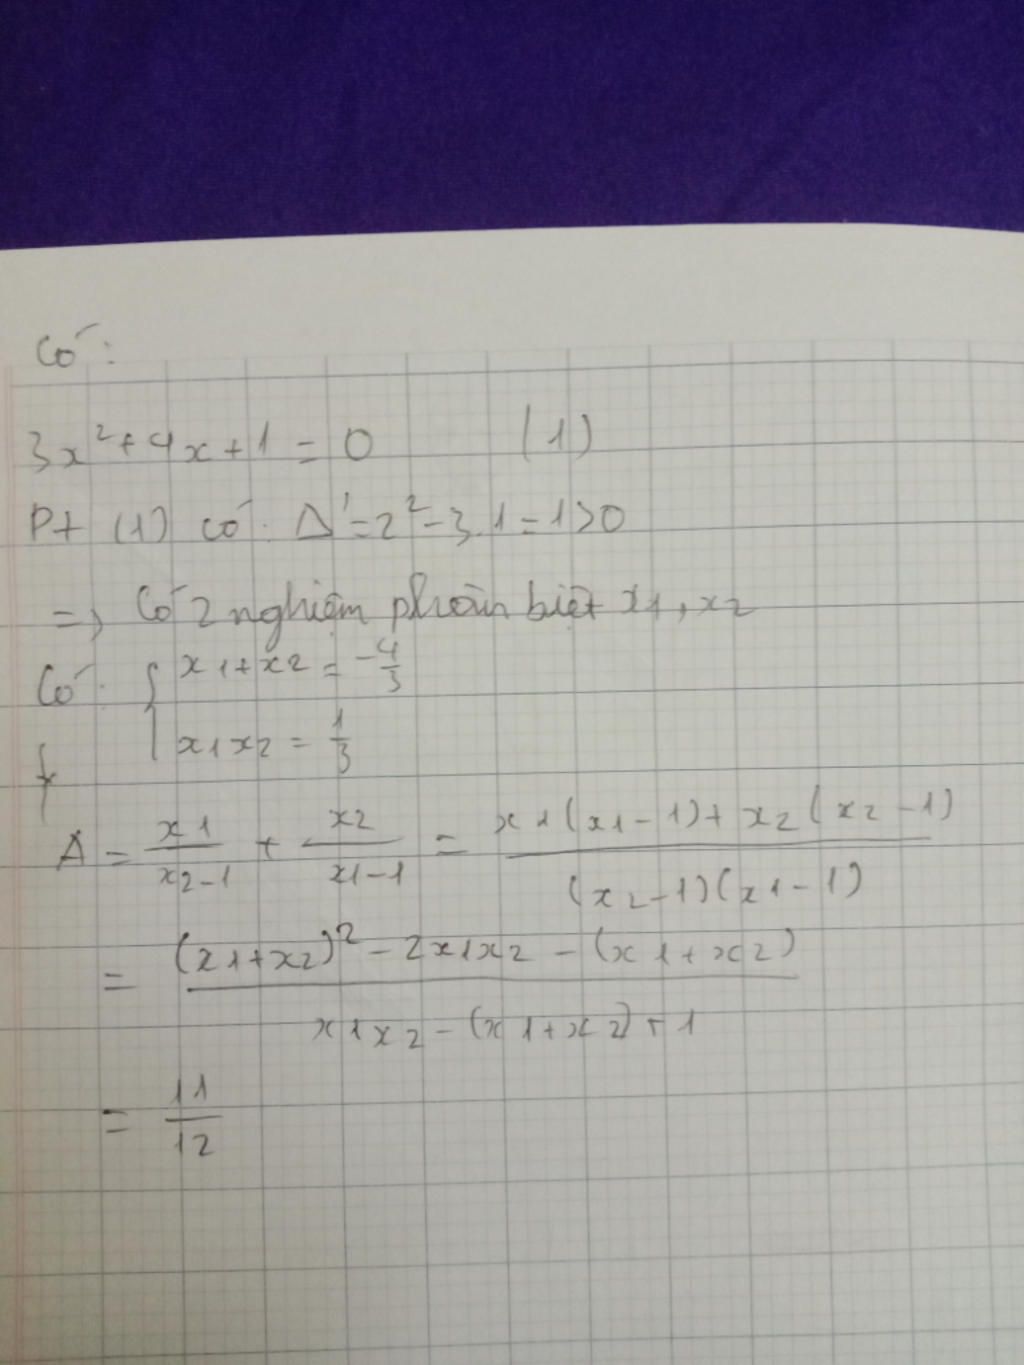 Có:
3x² + 4x + 1 = 0 (1)
Pt (1) có: Δ' = 2² - 3.1 = 1 > 0
=> Có 2 nghiệm phân biệt x1, x2
Có: { x1 + x2 = -4/3
x1x2 = 1/3
A = x1/(x2-1) + x2/(x1-1) = (x1(x1-1) + x2(x2-1))/((x2-1)(x1-1))
= ((x1+x2)² - 2x1x2 - (x1+x2))/(x1x2 - (x1+x2) + 1)
= 11/12